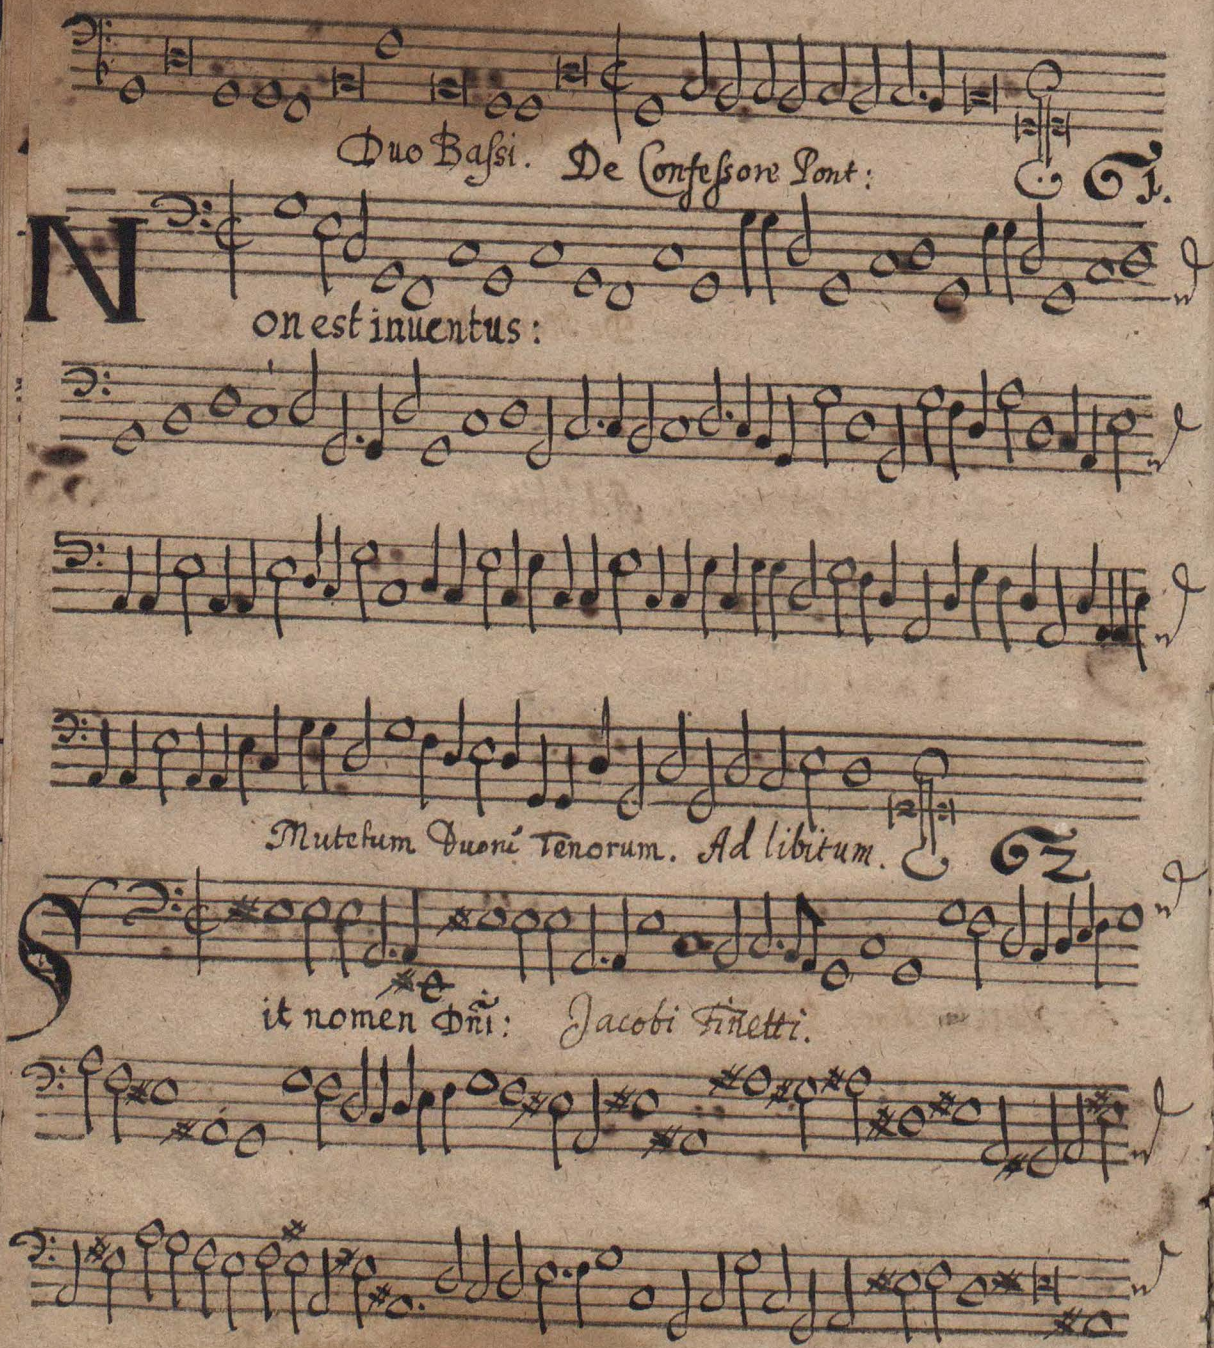 Duo Baſsi. De Confeſsore Pont: 61.
Non est inuentus:
Mutetum Duorū Tenorum. Ad libitum. 62
Sit nomen Dn̄i: Jacobi Fin̄etti.